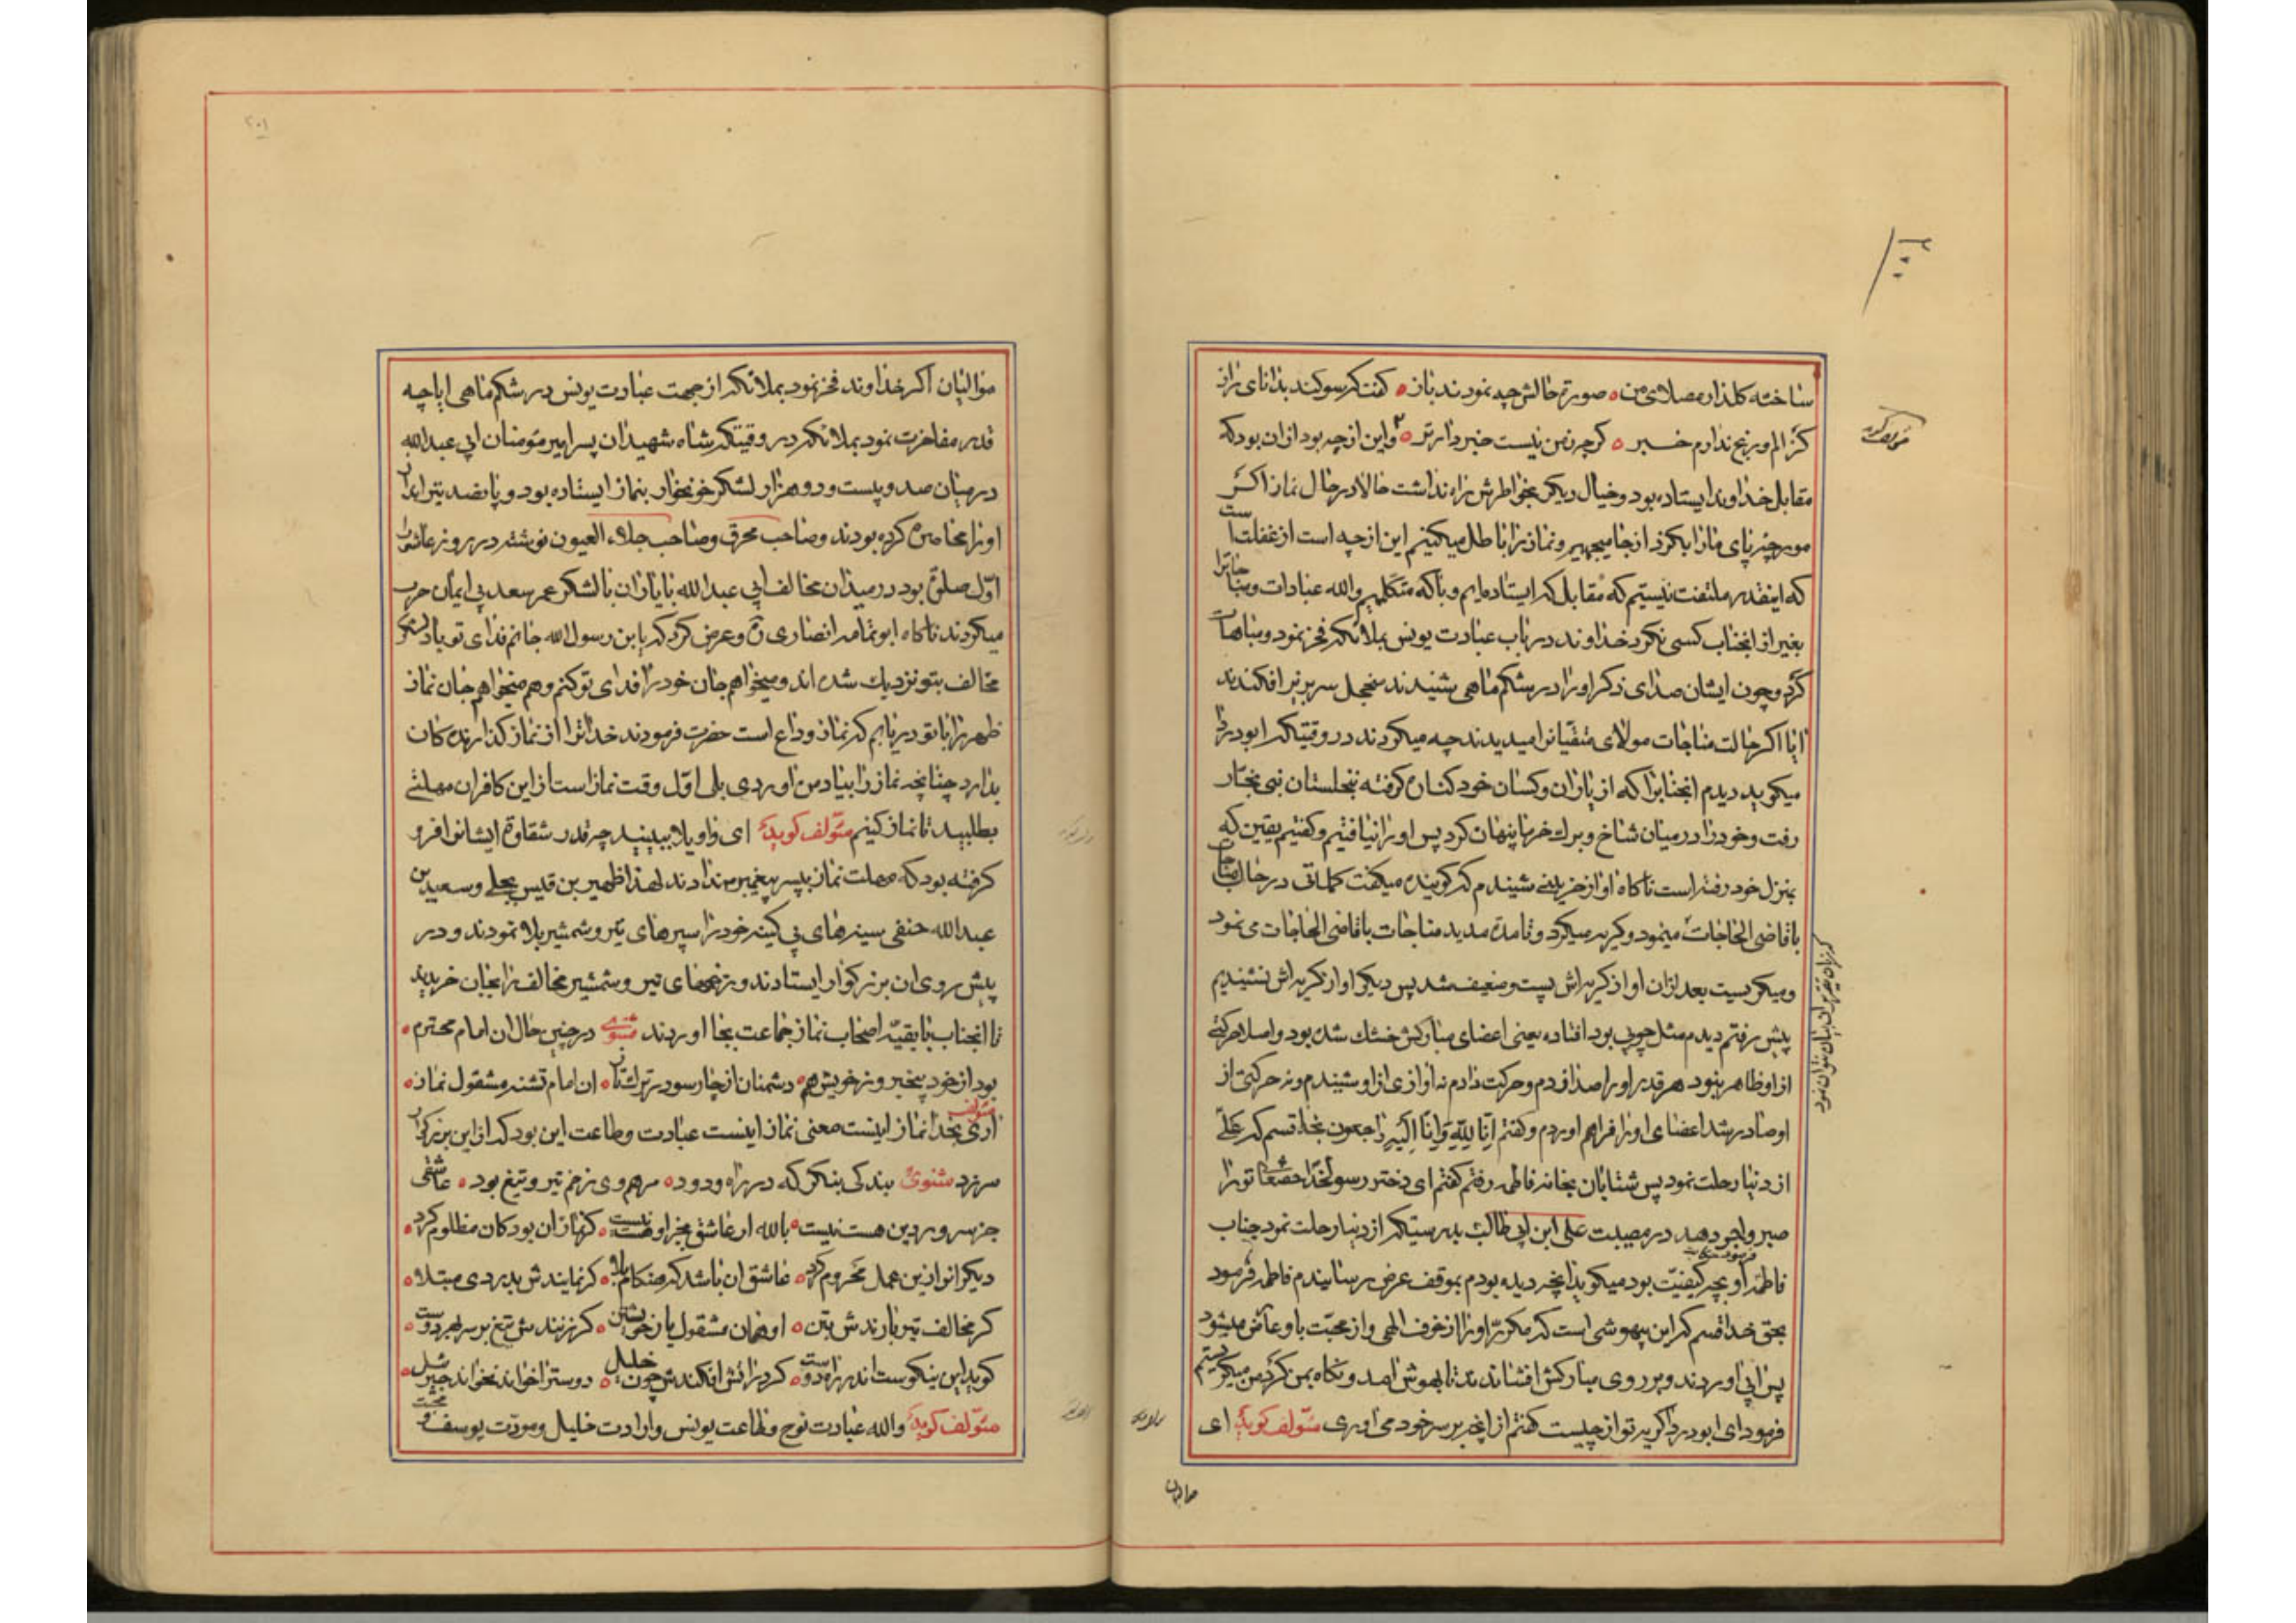 ساخته کلذار مصلای من ه صورة حالش چه نمودند باز ه کفت که سوکند بدانای راز
کز الم و رنج ندارم خبر ه کرچه ز من نیست خبردارتر ه و این از چه بود از ان بود که
مقابل خداوند ایستاده بود و خیال دیکر بخواطرش راه نداشت حالا در حال نماز اکر
مورچه پای مارا بکزد از جا میجهیم و نماز را باطل میکنیم این از چه است از غفلت است
که اینقدر ملتفت نیستیم که مقابل که ایستاده‌ایم و با که متکلمیم والله عبادات و مناجاترا
بغیر از انجناب کسی نکرد خداوند در باب عبادت یونس بملائکه فخر نمود و مباهات
کرد و چون ایشان صدای ذکر او را در شکم ماهی شنیدند منجمل سر بزیر افکندند
ایا اکر حالت مناجات مولای متقیانرا میدیدند چه میکردند در وقتیکه ابو دردا
میکوید دیدم انجنابرا که از یاران و کسان خود کناره کرفته بنخلستان بنی نجار
رفت و خود را در میان شاخ و برك خرما پنهان کرد پس او را نیافتیم و کفتیم یقین که
بمنزل خود رفته است ناکاه اواز حزینی شنیدم که کوینده میکفت کلماتی در حال مناجات
با قاضی الحاجات مینمود و کریه میکرد و تا مدة مدید مناجات با قاضی الحاجات می نمود
و میکریست بعد ازان اواز کریه‌اش پست و ضعیف شد پس دیکر اواز کریه اش نشنیدیم
پیش رفتم دیدم مثل چوبی بود افتاده یعنی اعضای مبارکش خشك شده بود و اصلا حرکتی
از او ظاهر نبود هر قدر او را صدا زدم و حرکت دادم نه اوازی از او شنیدم و نه حرکتی از
او صادر شد اعضای او را فراهم اوردم و کفتم انا لله و انا الیه راجعون بخدا قسم که علی
از دنیا رحلت نمود پس شتابان بخانه فاطمه رفتم کفتم ای دختر رسولخدا حقتعا تو را
صبر و اجر دهد در مصیبت علی ابن ابی طالب بدرستیکه از دنیا رحلت نمود جناب
فاطمه او بچه کیفیت بود میکوید انچه دیده بودم بموقف عرض رسانیدم فاطمه فرمود
بحق خدا قسم که این بیهوشی است که مکرر او را از خوف الهی و از محبت باو عارض میشود
پس ابی اوردند و بر روی مبارکش افشاندند تا بهوش امد و نکاه بمن کرد من میکریستم
فرمود ای ابو دردا کریه تو از چیست کفتم از انچه بر سر خود می اوری مؤلف کوید ای
موالیان
موالیان اکر خداوند فخر نمود بملائکه از جهت عبادت یونس در شکم ماهی ایا چه
قدر مفاخرت نمود بملائکه در وقتیکه شاه شهیدان پسر امیر مؤمنان ابی عبدالله
در میان صد و بیست و دو هزار لشکر خونخوار بنماز ایستاده بود و پانصد تیرانداز
او را محاصره کرده بودند و صاحب محرق و صاحب جلاء العیون نوشته در روز عاشورا
اول صلوة بود در میدان مخالف ابی عبدالله با یاران با لشکر عمر سعد بی ایمان حرب
میکردند ناکاه ابوثمامه انصاری ره عرض کرد که یا بن رسول الله جانم فدای تو باد لشکر
مخالف بتو نزدیك شده اند و میخواهم جان خود را فدای تو کنم و هم میخواهم جان نماز
ظهر را با تو دریابم که نماز وداع است حضرت فرمودند خدا ترا از نماز کذارندکان
بدارد چنانچه نماز را بیاد من اوردی بلی اول وقت نماز است از این کافران مهلتی
بطلبید تا نماز کنیم مؤلف کوید ای واویلا ببینید چه قدر شقاوة ایشانرا فرو
کرفته بود که مهلت نماز بپسر پیغمبر ندادند لهذا ظهیر بن قیس بجلی و سعید بن
عبدالله حنفی سینه های بی کینه خود را سپرهای تیر و شمشیر بلا نمودند و در
پیش روی ان بزرکوار ایستادند و زخمهای تیر و شمشیر مخالف را بجان خریدند
تا انجناب با بقیه اصحاب نماز جماعت بجا اوردند مثنوی در چنین حال ان امام محترم ه
بود از خود بیخبر وز خویش هم ه دشمنان از چار سو در ترك تاز ه ان امام تشنه مشغول نماز ه
اری بخدا نماز اینست معنی نماز اینست عبادت و طاعت این بود که از این بزرکوار
سر زد مثنوی بندکی بنکر که در راه ودود ه مرهم وی زخم تیر و تیغ بود ه عاشقی
جز سر و بر دین هست نیست ه بالله ار عاشق بجز او هست نیست ه کز نهان ان بود کان مظلوم کرد ه
دیکرانرا زین عمل محروم کرد ه عاشق ان باشد که هنکام بلا ه کر نمایندش بدردی مبتلا ه
کر مخالف تیر بارندش بتن ه او همان مشغول یار خویشتن ه کر زنندش تیغ بر سر بهر دوست ه
کوید این نیکوست اندر راه دوست ه کر در اتش افکندش چون خلیل ه دوسترا خواند نخواند جبرئیل ه
مؤلف کوید والله عبادت نوح و طاعت یونس و ارادت خلیل و مودت یوسف و محبت